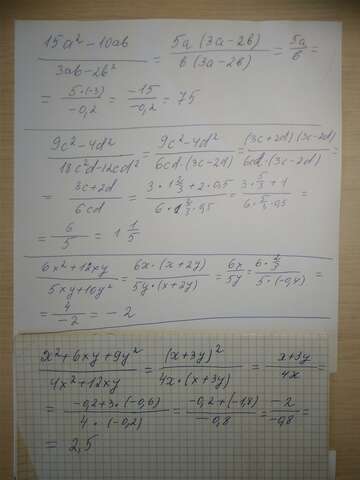 (15a² - 10ab)/(3ab - 2b²) = (5a (3a - 2b))/(b (3a - 2b)) = 5a/b =
= (5·(-3))/(-0,2) = -15/-0,2 = 75
(9c² - 4d²)/(18c²d - 12cd²) = (9c² - 4d²)/(6cd·(3c - 2d)) = ((3c + 2d)(3c - 2d))/(6cd·(3c - 2d)) =
= (3c + 2d)/(6cd) = (3·1 2/3 + 2·0,5)/(6·1 2/3·0,5) = (3·5/3 + 1)/(6·5/3·0,5) =
= 6/5 = 1 1/5
(6x² + 12xy)/(5xy + 10y²) = (6x·(x + 2y))/(5y·(x + 2y)) = 6x/5y = (6·2/3)/(5·(-0,4)) =
= 4/-2 = -2
(x² + 6xy + 9y²)/(4x² + 12xy) = (x + 3y)²/(4x·(x + 3y)) = (x + 3y)/(4x) =
= (-0,2 + 3·(-0,6))/(4·(-0,2)) = (-0,2 + (-1,8))/(-0,8) = -2/-0,8 =
= 2,5